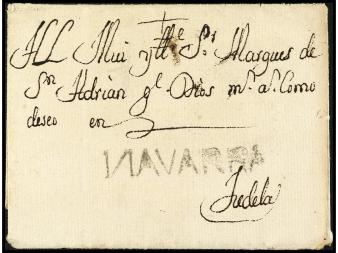 Al Mui ytte Sr Marques de
Sn Adrian ge Dios ms as Como
deseo en
NAVARRA
Tudela